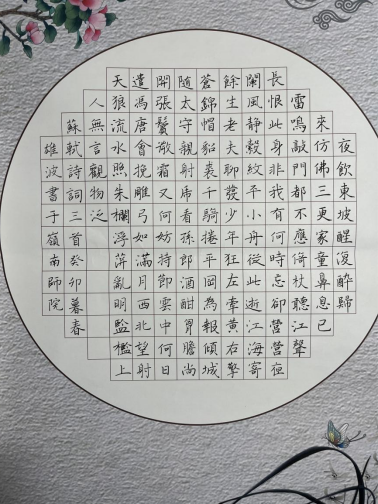 夜飲東坡醒復醉歸
來仿佛三更家童鼻息已
雷鳴敲門都不應倚杖聽江聲
長恨此身非我有何時忘卻營營夜
闌風靜縠紋平小舟從此逝江海寄
餘生老夫聊發少年狂左牽黃右擎
蒼錦帽貂裘千騎捲平岡為報傾城
隨太守親射虎看孫郎酒酣胸膽尚
開張鬢微霜又何妨持節雲中何日
遣馮唐會挽雕弓如滿月西北望射
天狼流水照朱欄浮萍亂明監檻上
人無言觀物泛
蘇軾詩詞三首癸卯暮春
雄波書于嶺南師院